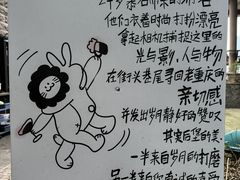 他们衣着时尚 打扮漂亮
拿起相机捕捉这里的
光与影、人与物
在街头巷尾寻回老重庆的
亲切感
并发出岁月静好的赞叹
其实后堡的美
一半来自岁月的打磨